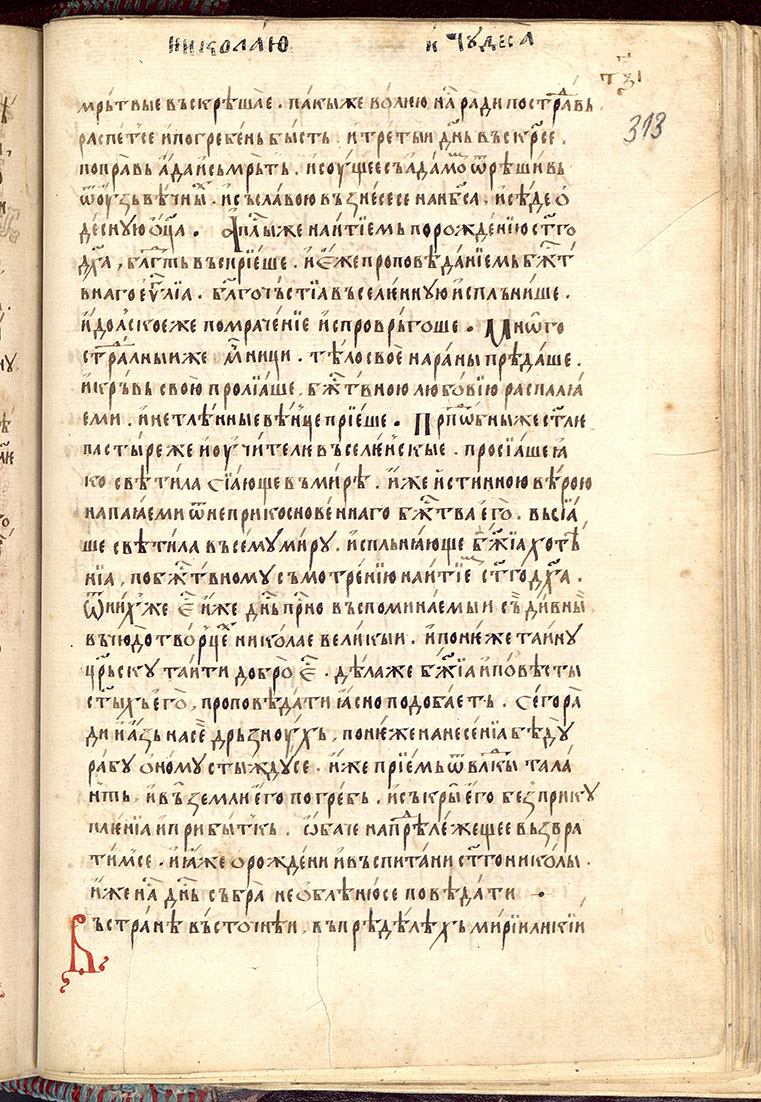 николаю и чудеса
т҃зı
313
мрьтвые въскрѣшае . пакыже волею на ради пострⷣавь
распетсе ипогребень бысть . и третыи д҃нь въскрⷭсе .
поправь ада исьмрьть . исоущеесъадамоⷨ ѿрѣшивь
ѿоузьвѣчныⷯ . исъславою възнесесе нанб҃са . исѣде о
десную ѻц҃а . Ап҃лы же наитіемь порожденію ст҃го
дх҃а , блгⷣть въспріеше . и еже проповѣданіемь бжⷭт
внаго еѵⷢліа . бл҃гочьстіа въселенную исплънише .
идолское же помраченіе испроврьгоше . Мнѡго
стрⷣалныи же мч҃ници . тѣло свое нараны прѣдаше .
икръвь свою проліаше бжⷭтвною любовію распалꙗ
еми . и нетлѣнные вѣнце пріеше . Прпⷣобныи же ст҃ле
пастыре же и оучителе въселенскые . просіаше ꙗ
ко свѣтила сіающе въ мирѣ . иже истинною вѣрою
напаꙗеми ѿ неприкосновеннаго бжⷭтва его . въсіа
ше свѣтила въсему миру . исплънꙗюще бж҃іа хотѣ
ніа , по бжⷭтвному съмотренію наитіе ст҃го дх҃а .
Ѿ ниⷯже еⷭ иже днⷭь прⷭно въспоминаемыи съ дивныⷨ
въ чюдотворцеⷯ николае великыи . и понеже таину
цр҃ьску таити добро еⷭ . дѣла же бж҃іа и повѣсты
ст҃ыхъ его , проповѣдати ꙗсно подобаеть . Сего ра
ди и азь на се дрьзноухъ , понеже нанесеніа бѣду
рабу оному стыждусе . иже пріемь ѿ влⷣкы тала
нть . и въ земли его погрѣбь . и съкры его без прику
пленіа и прибытⸯкь . ѡбаче на прⷣѣлежещее възвра
тимсе . и ꙗже о рождени и въспитани ст҃го николы .
иже на днⷭь събра не облѣнюсе повѣдати
Въ странѣ въсточнѣи , въ прѣдѣлѣхъ мирїиликіи